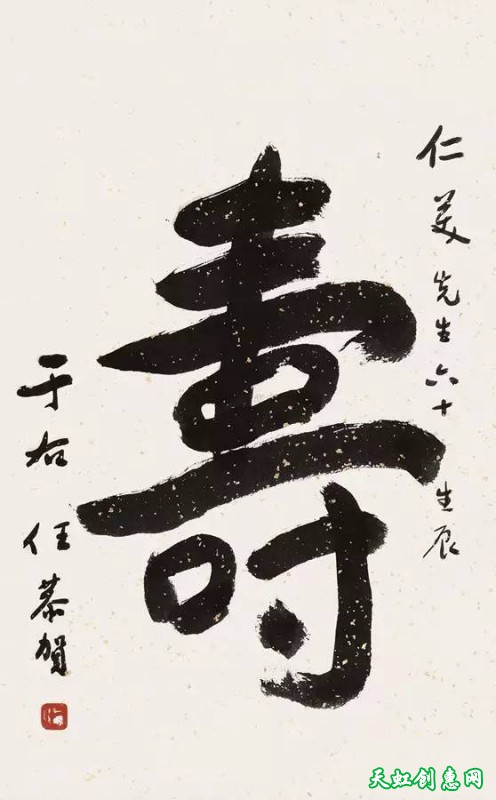 仁美先生六十生辰
壽
于右任恭賀
天虹创惠网